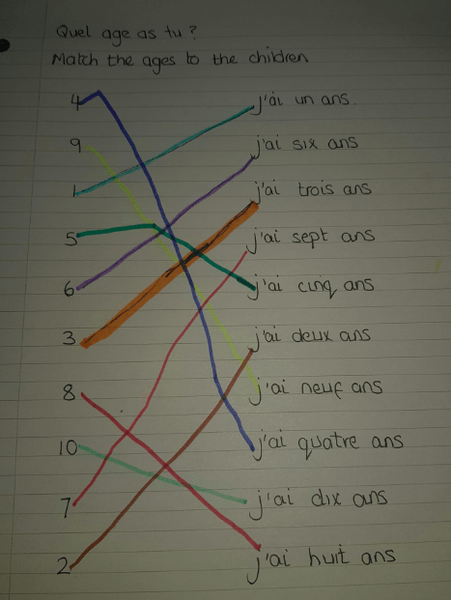 Quel age as tu?
Match the ages to the children
4 j'ai un ans
9 j'ai six ans
1 j'ai trois ans
5 j'ai sept ans
6 j'ai cinq ans
3 j'ai deux ans
8 j'ai neuf ans
10 j'ai quatre ans
7 j'ai dix ans
2 j'ai huit ans